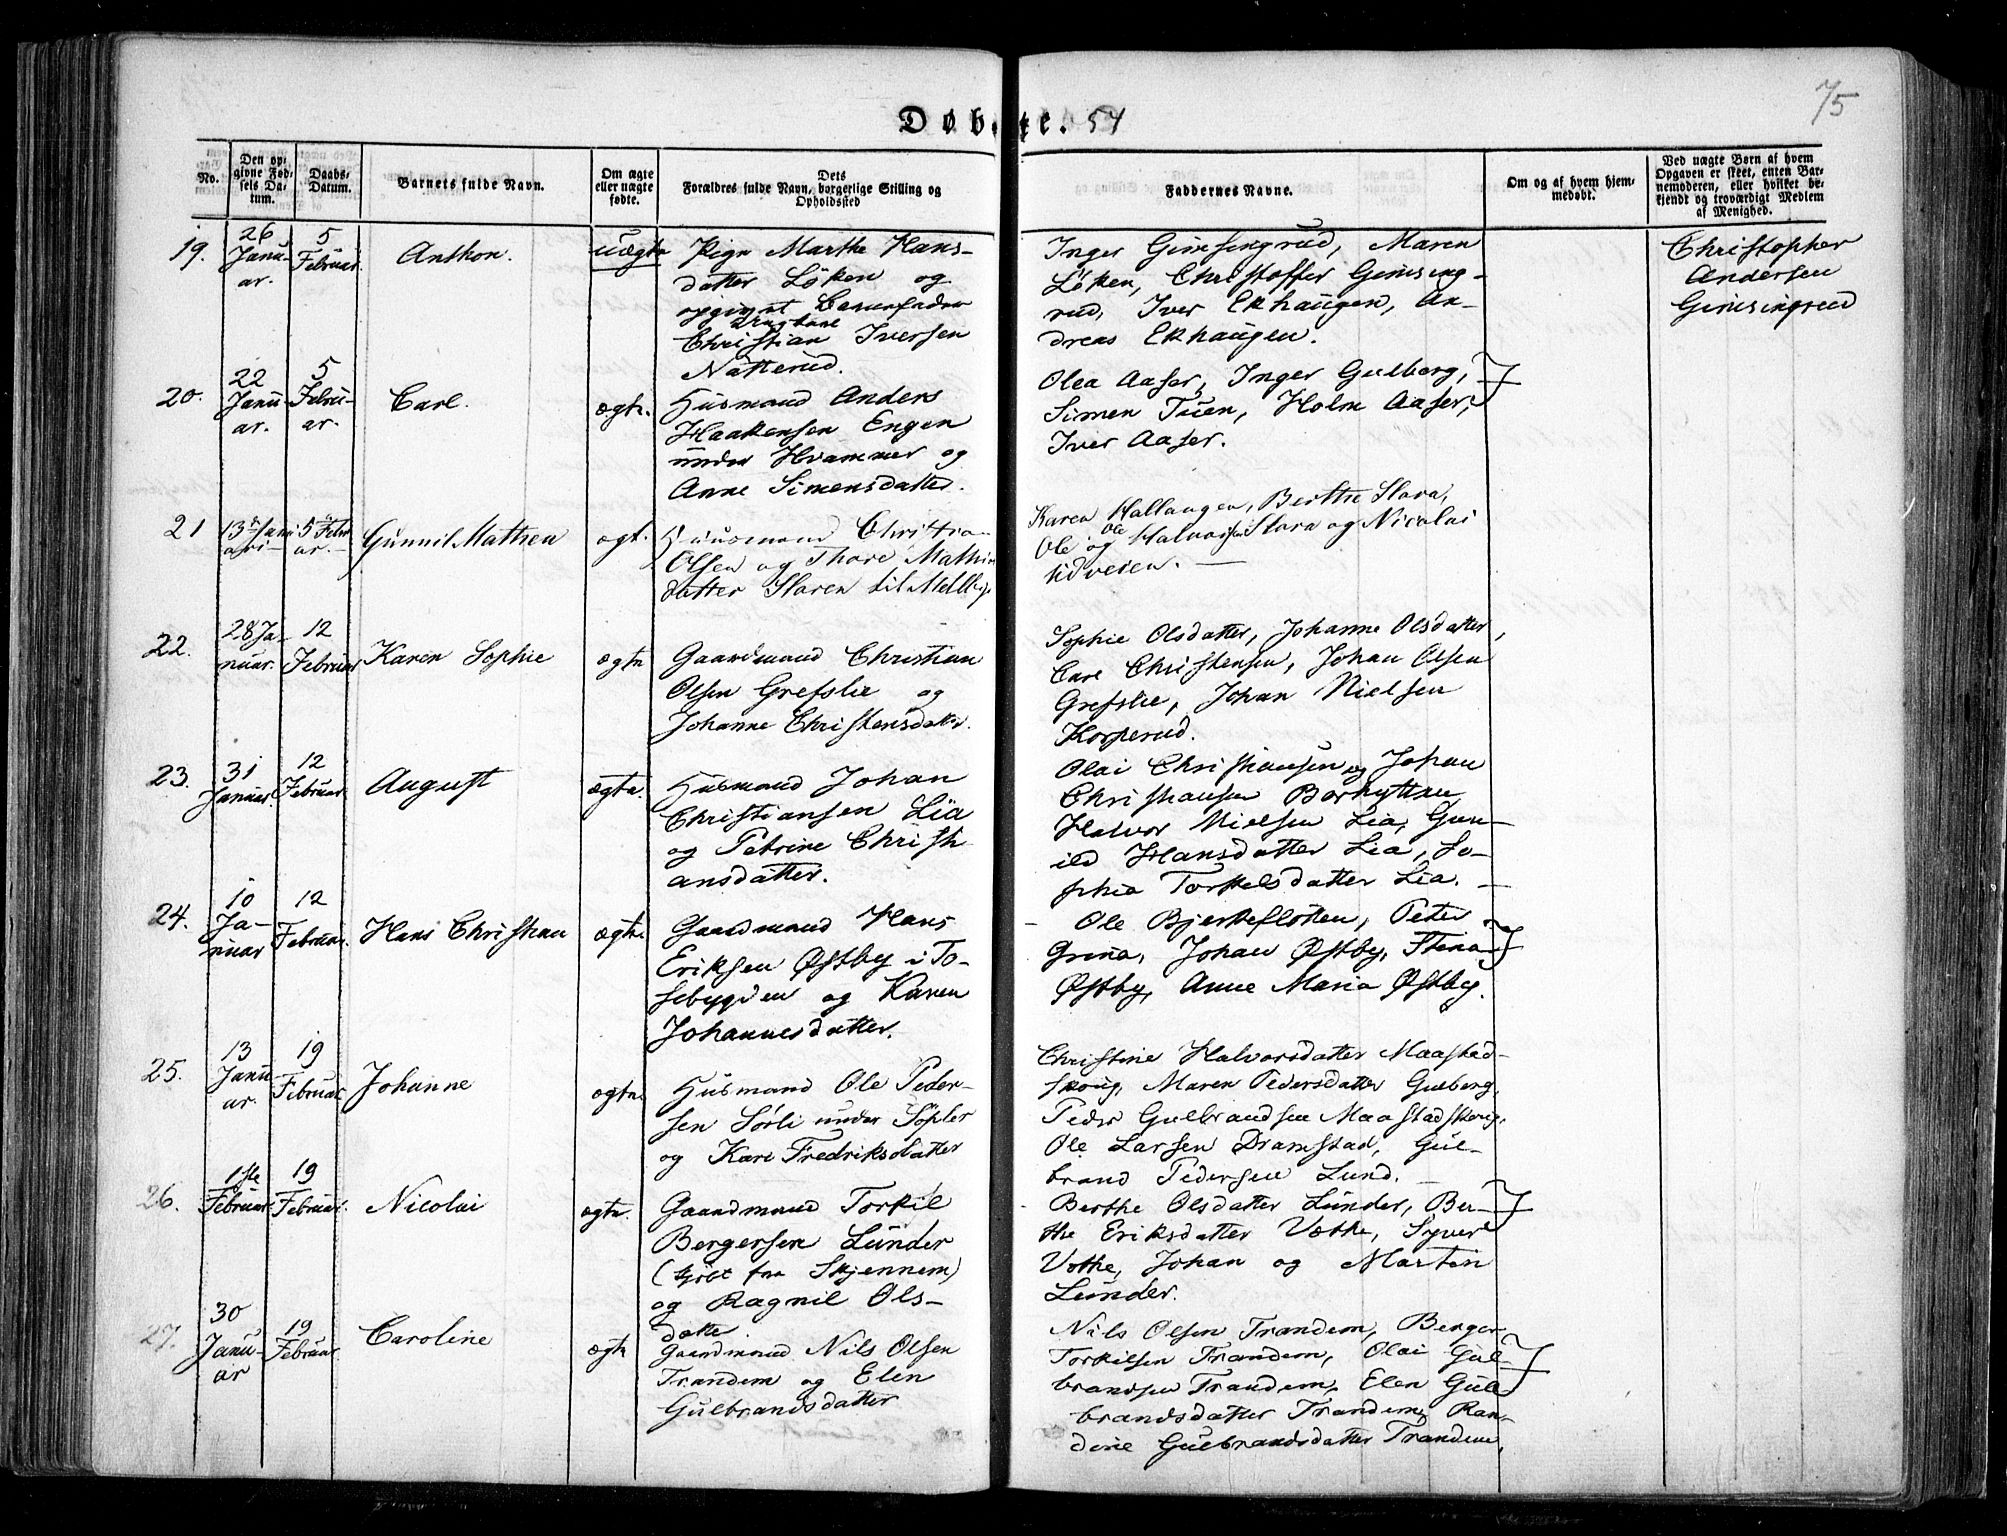 75
Døbte. 54
No.
Den op-
givne Fød-
sels Da-
tum.
Daabs-
Datum.
Barnets fulde Navn.
Om ægte
eller uægte
fødte.
Dets
Forældres fulde Navn, borgerlige Stilling og
Opholdssted
Faddernes Navne.
Om og af hvem hjem-
medøbt.
Ved uægte Børn af hvem
Opgaven er skeet, enten Bar-
nemoderen, eller hvilket be-
kjendt og troværdigt Medlem
af Menighed.
19.
26
Janu-
ar.
5
Februar.
Anthon.
uægte
Pige Marthe Hans-
datter Löken og
opgivet Barnefader
Ungkarl
Christian Iversen
Natterud.
Inger Gimsingrud, Maren
Löken, Christoffer Gimsing-
rud, Iver Ekhaugen, An-
dreas Ekhaugen.
Christopher
Andersen
Gimsingrud
20.
22
Janu-
ar.
5
Febru-
ar.
Carl.
ægte.
Husmand Anders
Haakensen Engen
under Hvammer og
Anne Simensdatter.
Olea Aaser, Inger Gulberg,
Simen Tuen, Holm Aaser,
Iver Aaser.
21
13 Janu
ari
5 Febr
ar.
Gunnil Mathea
ægt.
Huusmand Christia-
Olsen og Thore Mathis
datter Slaren til Mellby
Karen Hallangen, Berthe Slara,
Ole
Ole og Halvor Slara og Nicolai
Lidveien.
22.
28 Ja-
nuar.
12
Februar
Karen Sophie
ægte
Gaardmand Christian
Olsen Grefslie og
Johanne Christensdatr.
Sophie Olsdatter, Johanne Olsdatter,
Carl Christensen, Johan Olsen
Grefslie, Johan Nielsen
Korperud.
23.
31
Januar.
12
Februar
August
ægte.
Husmand Johan
Christiansen Lia
og Petrine Christi
ansdatter.
Olai Christiansen og Johan
Christiansen Borhyttan
Halvor Nielsen Lia, Gun-
ild Hansdatter Lia, So-
phia Torkelsdatter Lia.
24.
10
Ja-
nuar
12
Februar.
Hans Christian
ægte.
Gaardmand Hans
Eriksen Østby i To-
sebygden og Karen
Johannesdatter.
Ole Bjerkefløtten, Peter
Grina, Johan Østby, Stina
Østby, Anne Maria Østby.
25.
13
Janu
ar.
19
Februar.
Johanne
ægte.
Husmand Ole Peder-
sen Sørli under Sopler
og Kari Fredriksdatter
Christine Halvorsdatter Maastad-
skoug, Maren Pedersdatter Gulberg,
Peder Gulbrandsen Maastadskoug,
Ole Larsen Dramstad, Gul-
brand Pedersen Lund.
26.
1ste
Februar.
19
Februar.
Nicolai
ægte.
Gaardmand Torkil
Bergersen Lunder
(kjöbt fra Skjennem)
og Ragnil Ols-
datter.
Berthe Olsdatter Lunder, Ber-
the Eriksdatter Vothe, Syver
Vothe, Johan og Martin
Lunder.
27.
30
Janu-
ar
19
Februar
Caroline
ægte
Gaardmand Nils Olsen
Trandem og Elen
Gulbrandsdatter
Nils Olsen Trandem, Berger
Torkilsen Trandem, Olai Gul-
brandsen Trandem, Elen Gul-
brandsdatter Trandem, Ran-
dine Gulbrandsdatter Trandem.